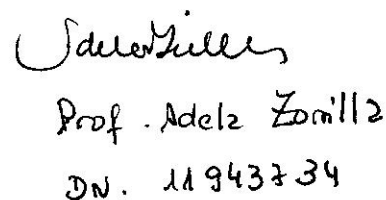 Prof. Adela Zorrilla
DN. 11943734